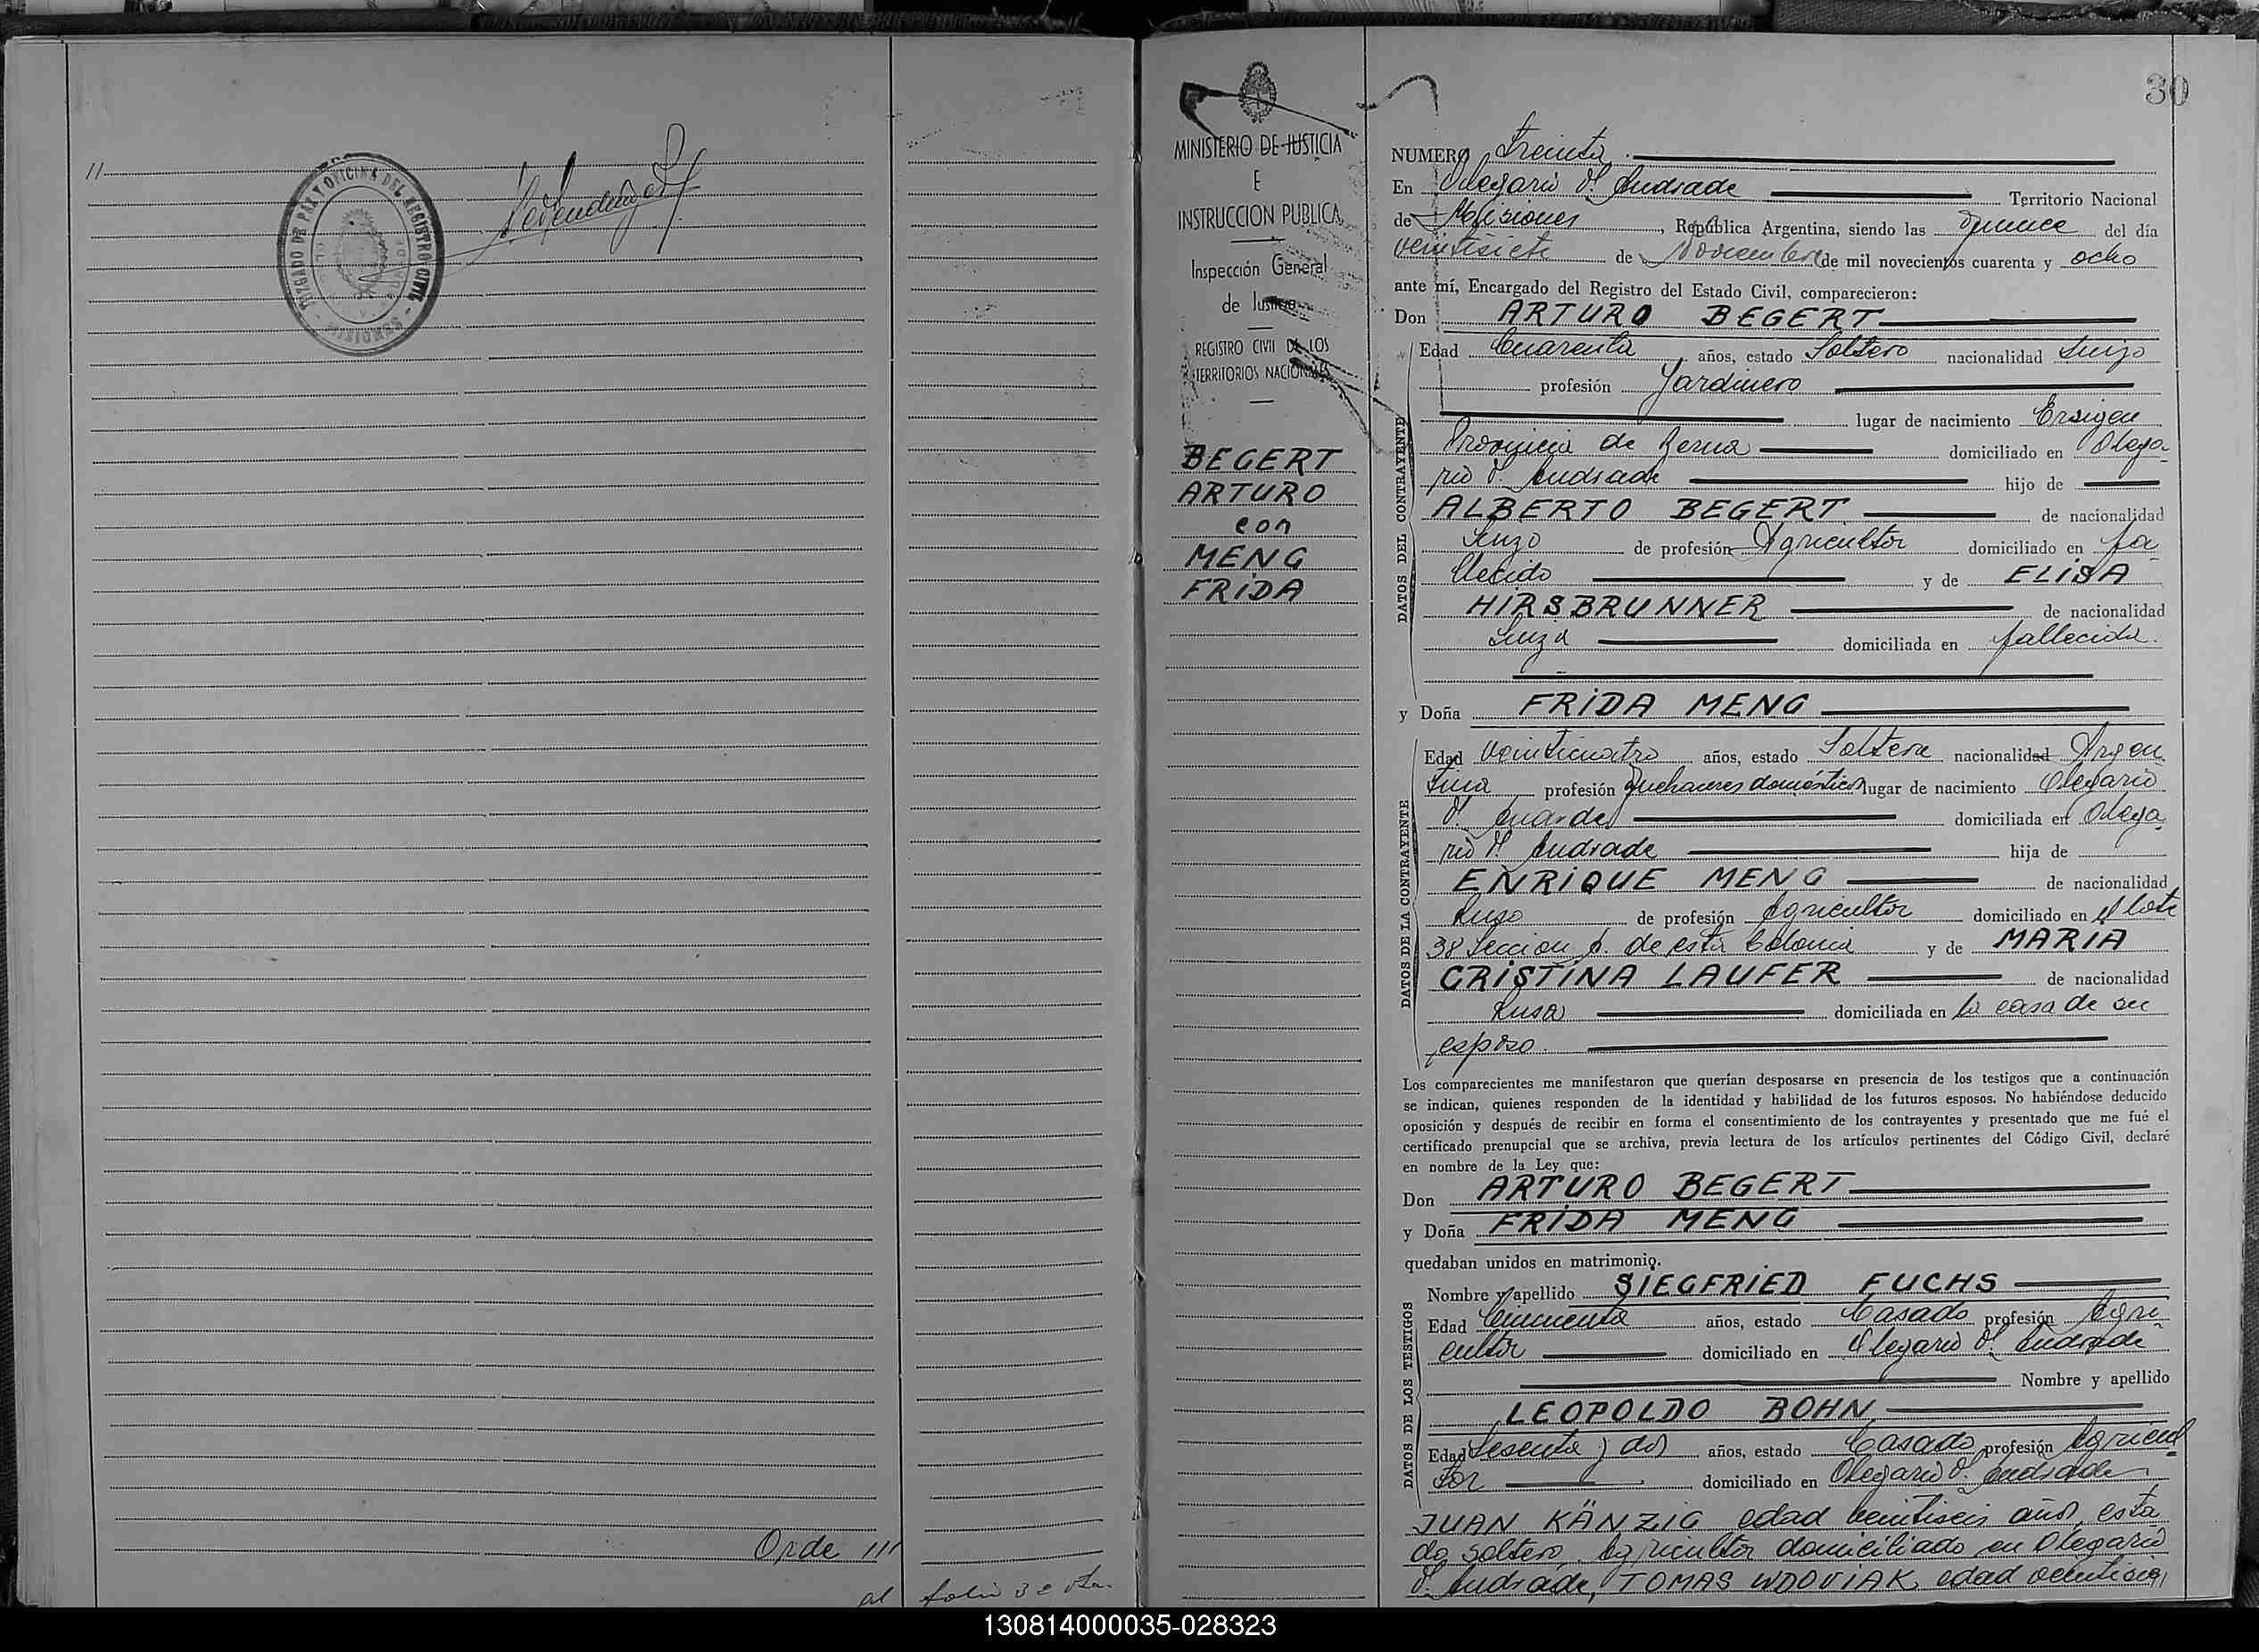 //
JUZGADO DE PAZ Y OFICINA DEL REGISTRO CIVIL
Orde ///
al folio 32 vta.
30
MINISTERIO DE JUSTICIA
E
INSTRUCCION PUBLICA
Inspección General
de Justicia
REGISTRO CIVIL DE LOS
TERRITORIOS NACIONALES
BEGERT
ARTURO
con
MENG
FRIDA
NUMERO Treinta.
En Olegario V. Andrade Territorio Nacional
de Misiones, República Argentina, siendo las quince del día
veintisiete de Noviembre de mil novecientos cuarenta y ocho
ante mí, Encargado del Registro del Estado Civil, comparecieron:
Don ARTURO BEGERT
DATOS DEL CONTRAYENTE
Edad Cuarenta, años, estado Soltero nacionalidad Suizo
profesión Jardinero
lugar de nacimiento Ersigen
Provincia de Berna domiciliado en Olega-
rio V. Andrade hijo de
ALBERTO BEGERT de nacionalidad
Suizo de profesión Agricultor domiciliado en fa-
llecido y de ELISA
HIRSBRUNNER de nacionalidad
Suiza domiciliada en fallecida.
y Doña FRIDA MENG
DATOS DE LA CONTRAYENTE
Edad veinticuatro años, estado Soltera nacionalidad Argen
tina profesión Quehaceres domésticos lugar de nacimiento Olegario
V. Andrade domiciliada en Olega-
rio V. Andrade hija de
ENRIQUE MENG de nacionalidad
Ruso de profesión Agricultor domiciliado en el lote
38 Seccion 6. de esta Colonia y de MARIA
CRISTINA LAUFER de nacionalidad
Rusa domiciliada en la casa de su
esposo.
Los comparecientes me manifestaron que querían desposarse en presencia de los testigos que a continuación
se indican, quienes responden de la identidad y habilidad de los futuros esposos. No habiéndose deducido
oposición y después de recibir en forma el consentimiento de los contrayentes y presentado que me fué el
certificado prenupcial que se archiva, previa lectura de los artículos pertinentes del Código Civil, declaré
en nombre de la Ley que:
Don ARTURO BEGERT
y Doña FRIDA MENG
quedaban unidos en matrimonio.
DATOS DE LOS TESTIGOS
Nombre y apellido SIEGFRIED FUCHS
Edad Cincuenta años, estado Casado profesión Agri-
cultor domiciliado en Olegario V. Andrade
Nombre y apellido
LEOPOLDO BOHN
Edad Sesenta y dos años, estado Casado profesión Agricul-
tor domiciliado en Olegario V. Andrade,
JUAN KÄNZIG edad veintiseis años, esta
do soltero, Agricultor domiciliado en Olegario
V. Andrade, TOMAS WDOVIAK edad veintiseis,
130814000035-028323